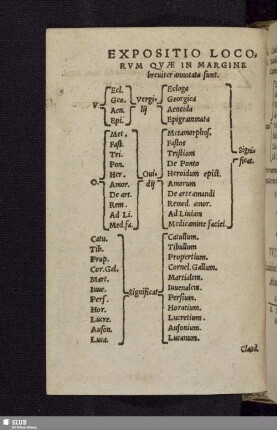 EXPOSITIO LOCO-
RVM QVÆ IN MARGINE
breuiter annotata sunt.
V. Ecl. Vergilij Ecloga
Geo. Georgica
Aen. Aeneida
Epi. Epigrammata
Significat.
O. Met. Ouidij Metamorphos.
Fast. Fastos
Tri. Tristium
Pon. De Ponto
Her. Heroidum epist.
Amor. Amorum
De art. De arte amandi
Rem. Remed. amor.
Ad Li. Ad Liuiam
Med. fa. Medicamine faciei
Catu. Significat Catullum.
Tib. Tibullum
Prop. Propertium.
Cor. Gal. Cornel. Gallum.
Mart. Martialem.
Iuue. Iuuenalem.
Pers. Persium.
Hor. Horatium.
Lucre. Lucretium.
Auson. Ausonium.
Luca. Lucanum.
Claud.
SLUB